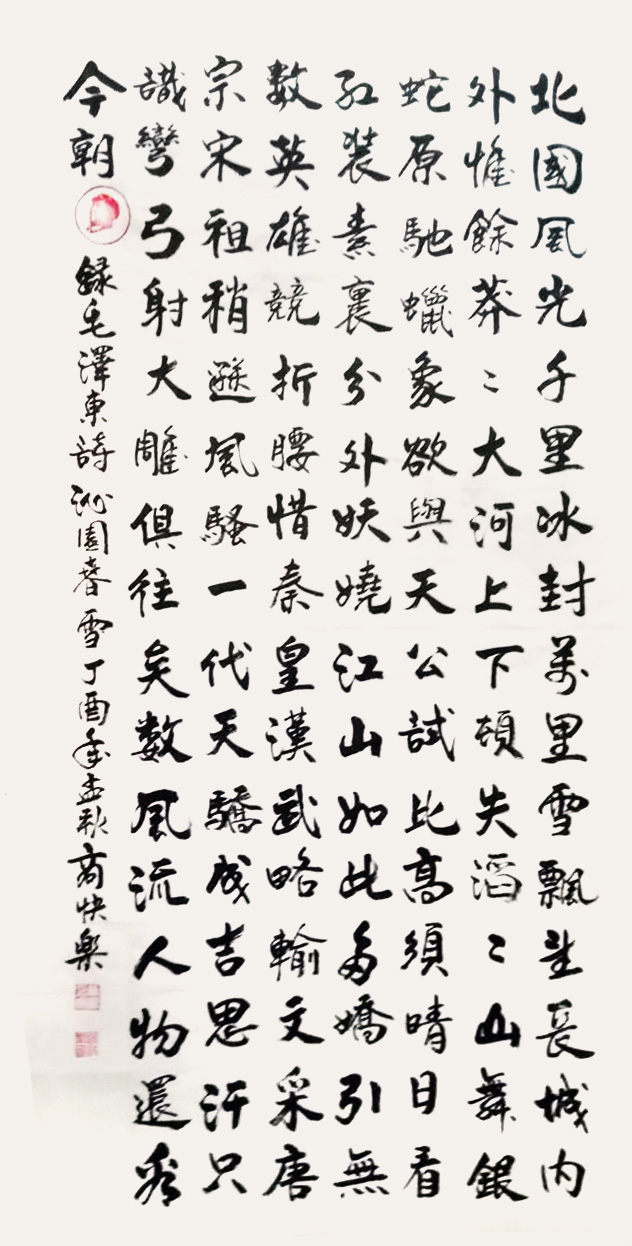 北國風光千里冰封萬里雪飄望長城内
外惟餘莽〻大河上下頓失滔〻山舞銀
蛇原馳蠟象欲與天公試比高須晴日看
紅装素裹分外妖嬈江山如此多嬌引無
數英雄競折腰惜秦皇漢武略輸文采唐
宗宋祖稍遜風騷一代天驕成吉思汗只
識彎弓射大雕俱往矣數風流人物還看
今朝 錄毛澤東詩沁園春雪丁酉年孟秋商快樂